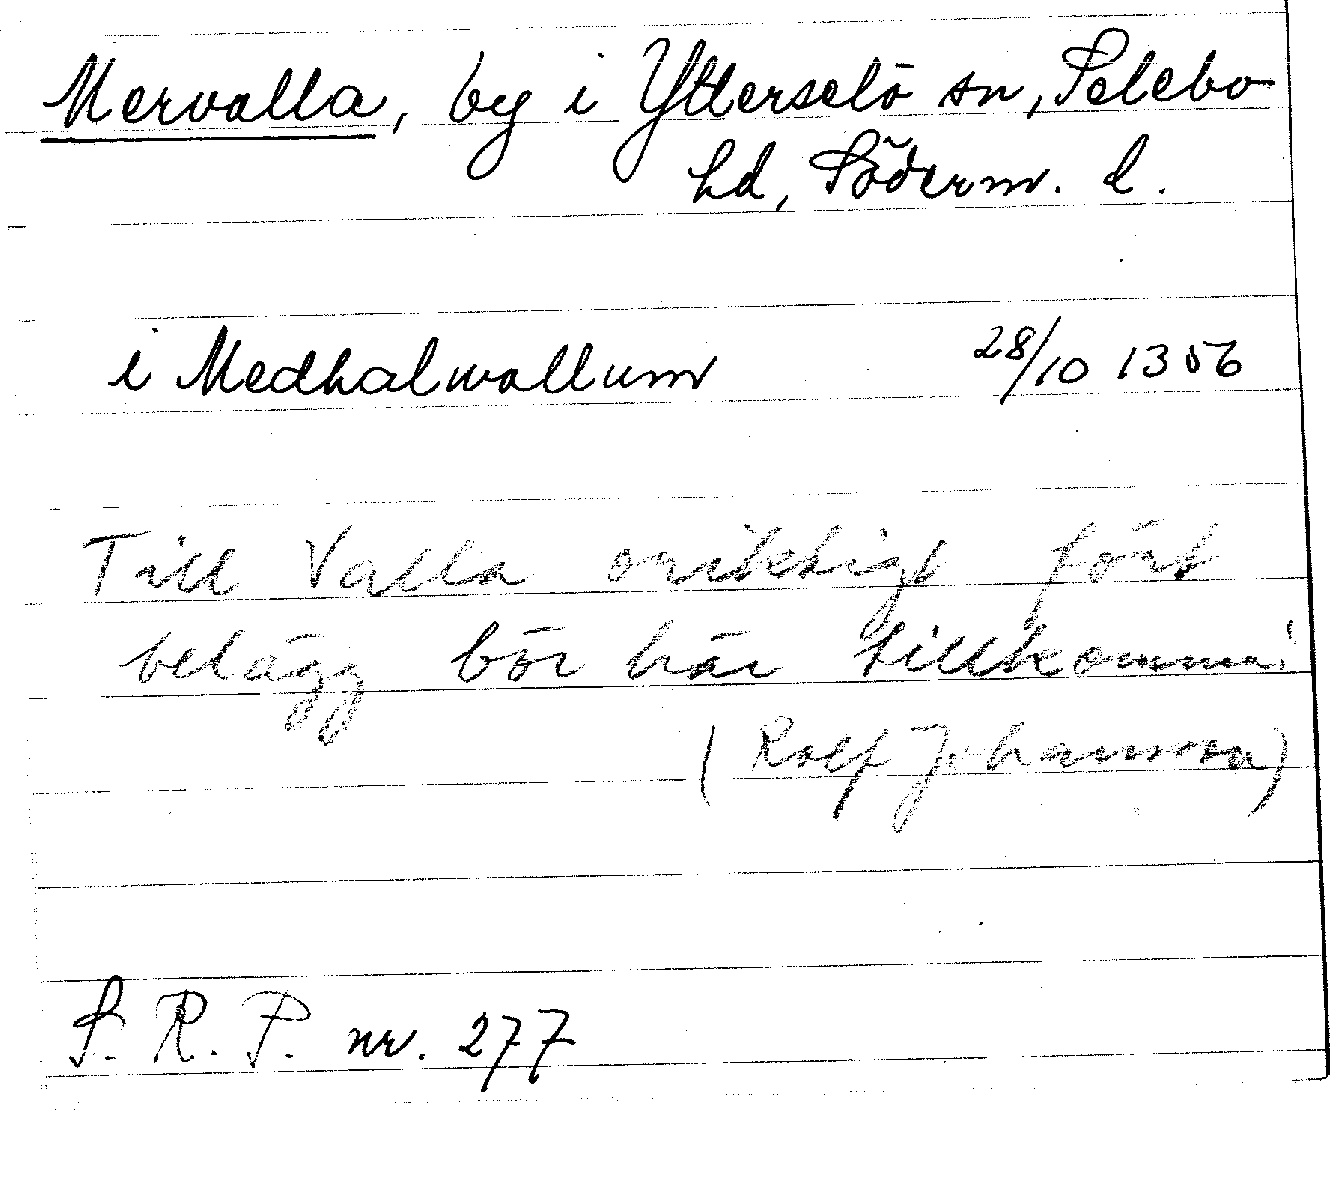 Mervalla, by i Ytterselö sn, Selebo
hd, Söderm. l.
i Medhalwallum 28/10 1356
Till Valla oriktigt fört
belägg bör här tillkomma
(Rolf Johansson)
S. R. P. nr. 277